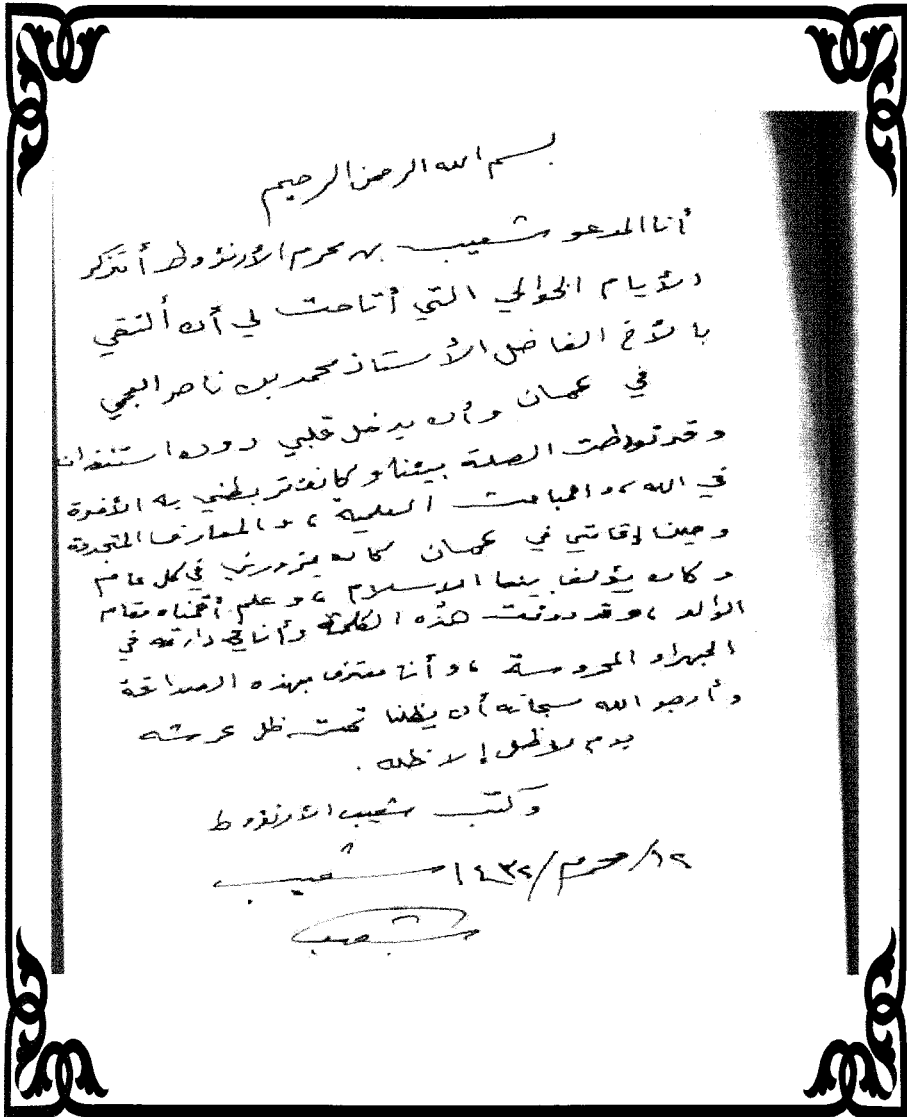 بسم الله الرحمن الرحيم
أنا المدعو شعيب بن محرم الأرنؤوط أتذكر
الأيام الخوالي التي أتاحت لي أن ألتقي
بالأخ الفاضل الأستاذ محمد بن ناصر العجمي
في عمان وأن يدخل قلبي دون استئذان
وقد توطدت الصلة بيننا وكانت تربطني به الأخوة
في الله، والمباحث العلمية، والمعارف المتجددة
وحين إقامتي في عمان كان يزورني في كل عام
وكان يؤلف بيننا الإسلام، وعلم أقمناه مقام
الوالد، وقد دونت هذه الكلمة وأنا في دارته في
الجهراء المحروسة، وأنا معتز بهذه الصداقة
وأرجو الله سبحانه أن يظلنا تحت ظل عرشه
يوم لا ظل إلا ظله.
وكتب شعيب الأرنؤوط
١٢/محرم/١٤٣٢ شعيب
شعيب